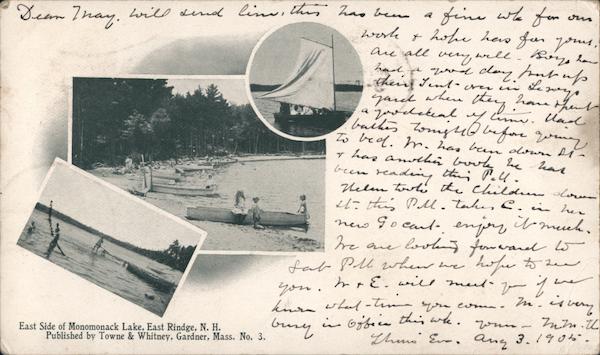 Dear May. Will send line, this has been a fine wk for our
work & hope has for yours.
are all very well. Boys have
had a good day, put up
their Tent over in
yard where they have spent
a good deal of time. Had
baths tonight before going
to bed. W. has been down St.
& has another book he has
been reading this P.M.
Helen took the Children down
st. this P.M. takes C. in her
new Go cart. enjoy it much.
We are looking forward to
Sat P.M. when we hope to see
you. W & E. will meet you if we
know what time you come. M. is very
busy in Office this wk. yours
Thurs Eve. Aug 3. 1905.
East Side of Monomonack Lake, East Rindge, N. H.
Published by Towne & Whitney, Gardner, Mass. No. 3.